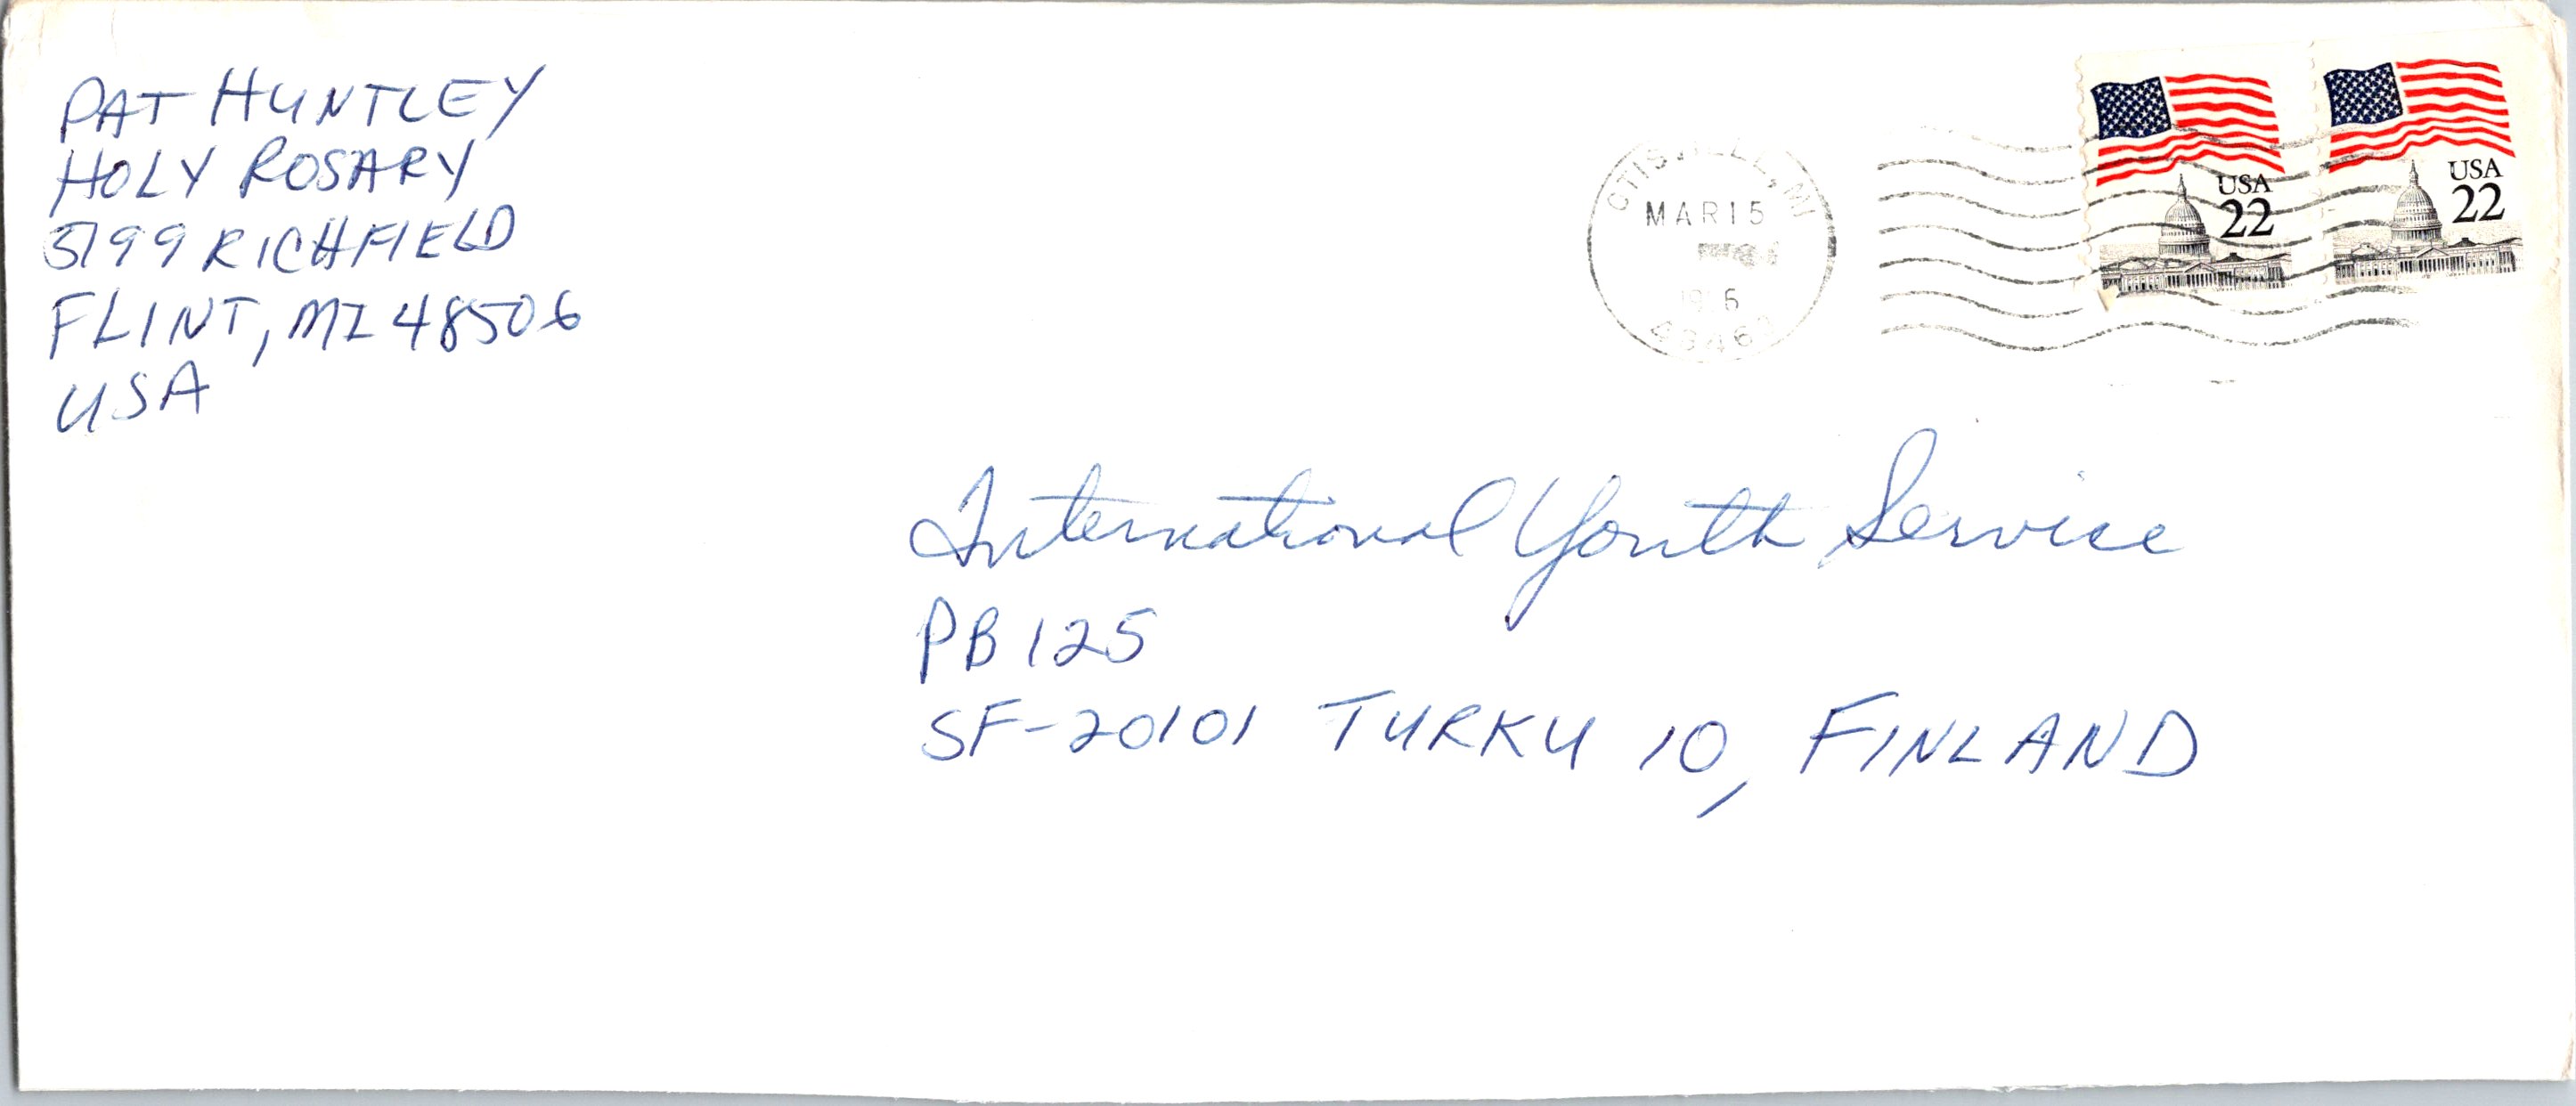 PAT HUNTLEY
HOLY ROSARY
5199 RICHFIELD
FLINT, MI 48506
USA
MAR 15
USA
22
USA
22
International Youth Service
PB 125
SF-20101 TURKU 10, FINLAND